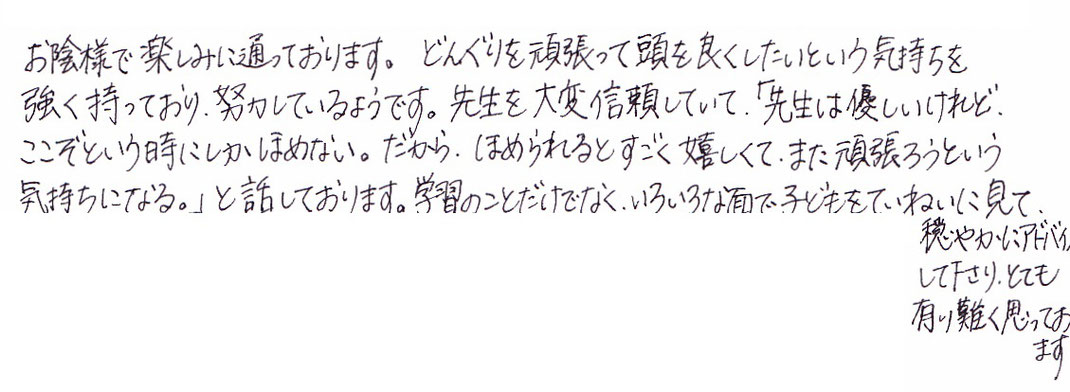 お陰様で楽しみに通っております。どんぐりを頑張って頭を良くしたいという気持ちを
強く持っており、努力しているようです。先生を大変信頼していて、「先生は優しいけれど、
ここぞという時にしかほめない。だから、ほめられるとすごく嬉しくて、また頑張ろうという
気持ちになる。」と話しております。学習のことだけでなく、いろいろな面で子どもをていねいに見て、
穏やかにアドバイ
して下さり、とても
有り難く思ってお
ます